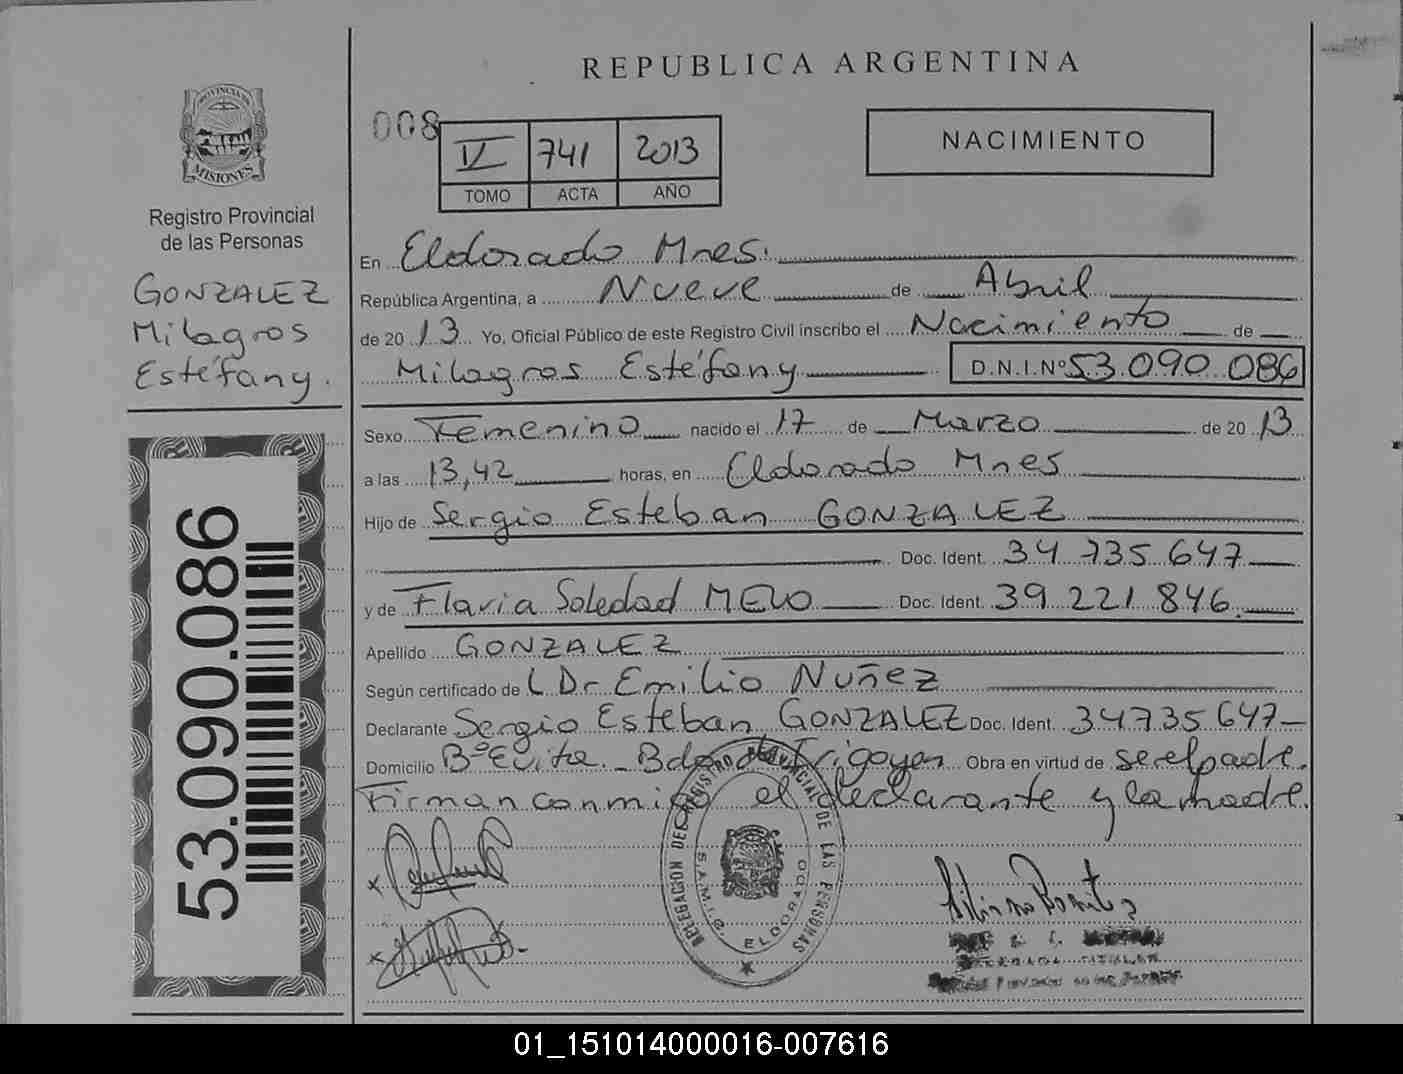 REPUBLICA ARGENTINA
PROVINCIA DE
MISIONES
Registro Provincial
de las Personas
GONZALEZ
Milagros
Estéfany.
53.090.086
008
IV 741 2013
TOMO ACTA AÑO
NACIMIENTO
En Eldorado Mnes.
República Argentina, a Nueve de Abril
de 20 13 Yo, Oficial Público de este Registro Civil inscribo el Nacimiento de
Milagros Estéfany D.N.I.Nº 53.090.086
Sexo Femenino nacido el 17 de Marzo de 20 13
a las 13,42 horas, en Eldorado Mnes
Hijo de Sergio Esteban GONZALEZ
Doc. Ident. 34.735.647
y de Flavia Soledad MELO Doc. Ident. 39.221.846
Apellido GONZALEZ
Según certificado de Dr Emilio Nuñez
Declarante Sergio Esteban GONZALEZ Doc. Ident. 34735647
Domicilio Bº Evita - Bdo de Irigoyen Obra en virtud de ser el padre.
Firman conmigo el declarante y la madre.
DELEGACION DEL REGISTRO PROVINCIAL DE LAS PERSONAS
ELDORADO
01_151014000016-007616